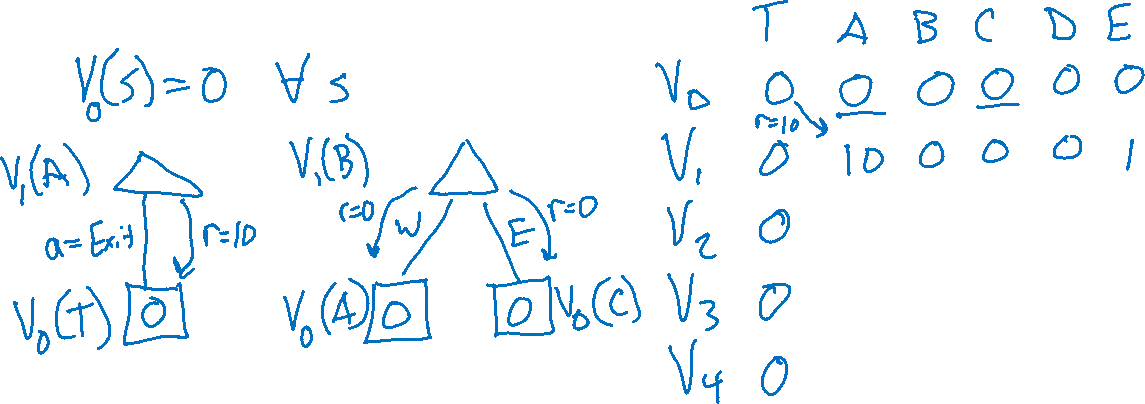 V₀(S)=0 ∀ s
V₁(A)
a=Exit
r=10
V₀(T) 0
V₁(B)
r=0 W E r=0
V₀(A) 0 0 V₀(C)
T A B C D E
V₀ 0 0 0 0 0 0
r=10
V₁ 0 10 0 0 0 1
V₂ 0
V₃ 0
V₄ 0